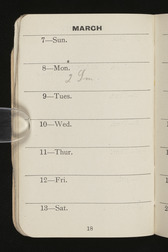 MARCH
7—Sun.
8—Mon.
9—Tues.
10—Wed.
11—Thur.
12—Fri.
13—Sat.
18